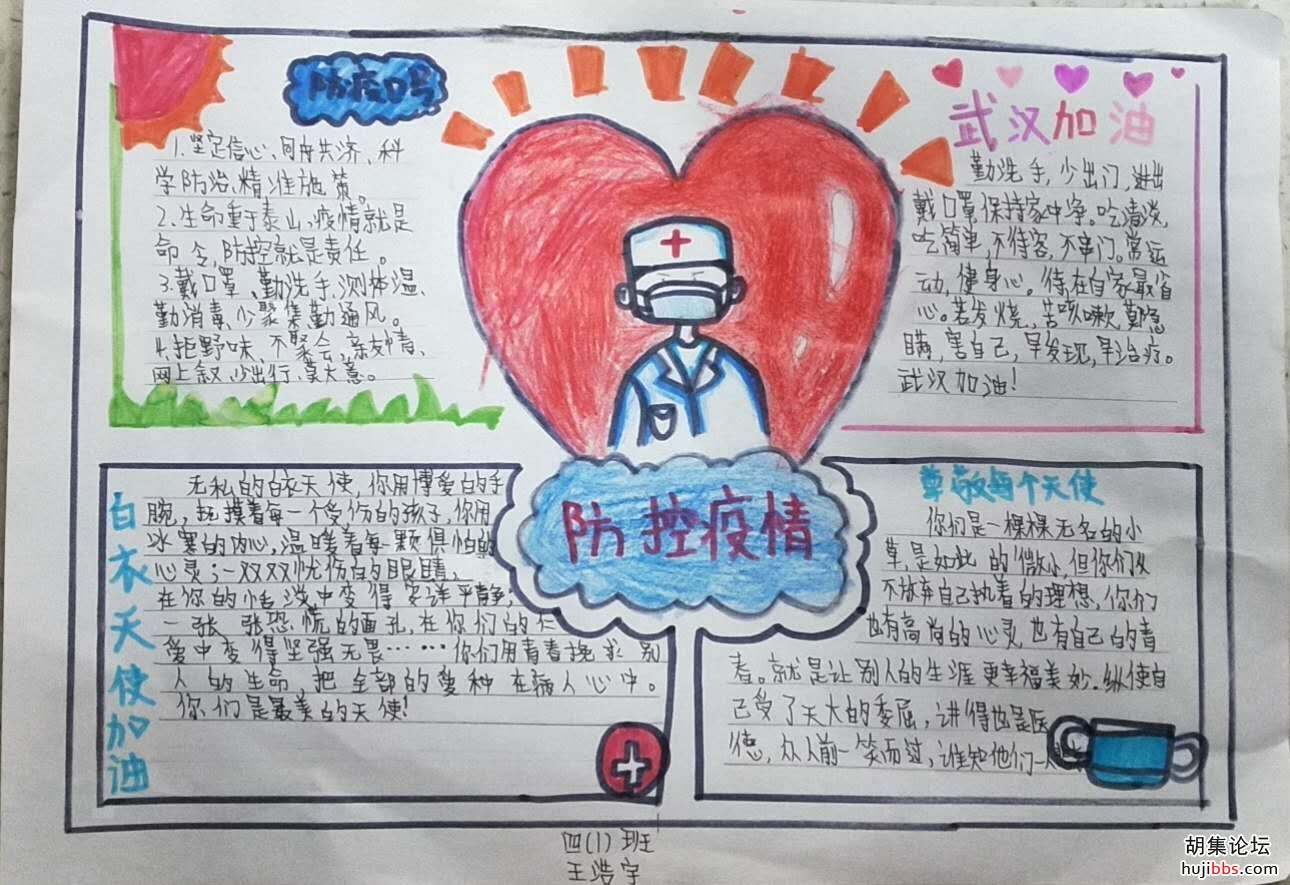 防疫口号
1.坚定信心、同舟共济、科
学防治、精准施策。
2.生命重于泰山,疫情就是
命令,防控就是责任。
3.戴口罩、勤洗手、测体温、
勤消毒、少聚集勤通风。
4.拒野味、不聚会、亲友情、
网上叙、少出行、莫大意。
武汉加油
勤洗手,少出门,进出
戴口罩,保持家中净。吃清淡,
吃简单,不待客,不串门。常运
动,健身心。待在自家最省
心。若发烧,苦咳嗽,莫隐
瞒,害自己,早发现,早治疗。
武汉加油!
防控疫情
白衣天使加油
无私的白衣天使,你用博爱的手
腕,抚摸着每一个受伤的孩子,你用
冰寒的内心,温暖着每颗惧怕的
心灵;一双双忧伤的眼睛,
在你的恬淡中变得安详平静;
一张张恐慌的面孔,在你们的仁
爱中变得坚强无畏……你们用青春挽救别
人的生命,把全部的爱种在病人心中。
你们是最美的天使!
尊敬每个天使
你们是一棵棵无名的小
草,是如此的微小,但你们从
不放弃自己执着的理想,你们
也有高尚的心灵也有自己的青
春。就是让别人的生涯更幸福美妙.纵使自
己受了天大的委屈,讲得也是医
德,众人前一笑而过,谁知他们一
四(1)班
王浩宇
胡集论坛
hujibbs.com